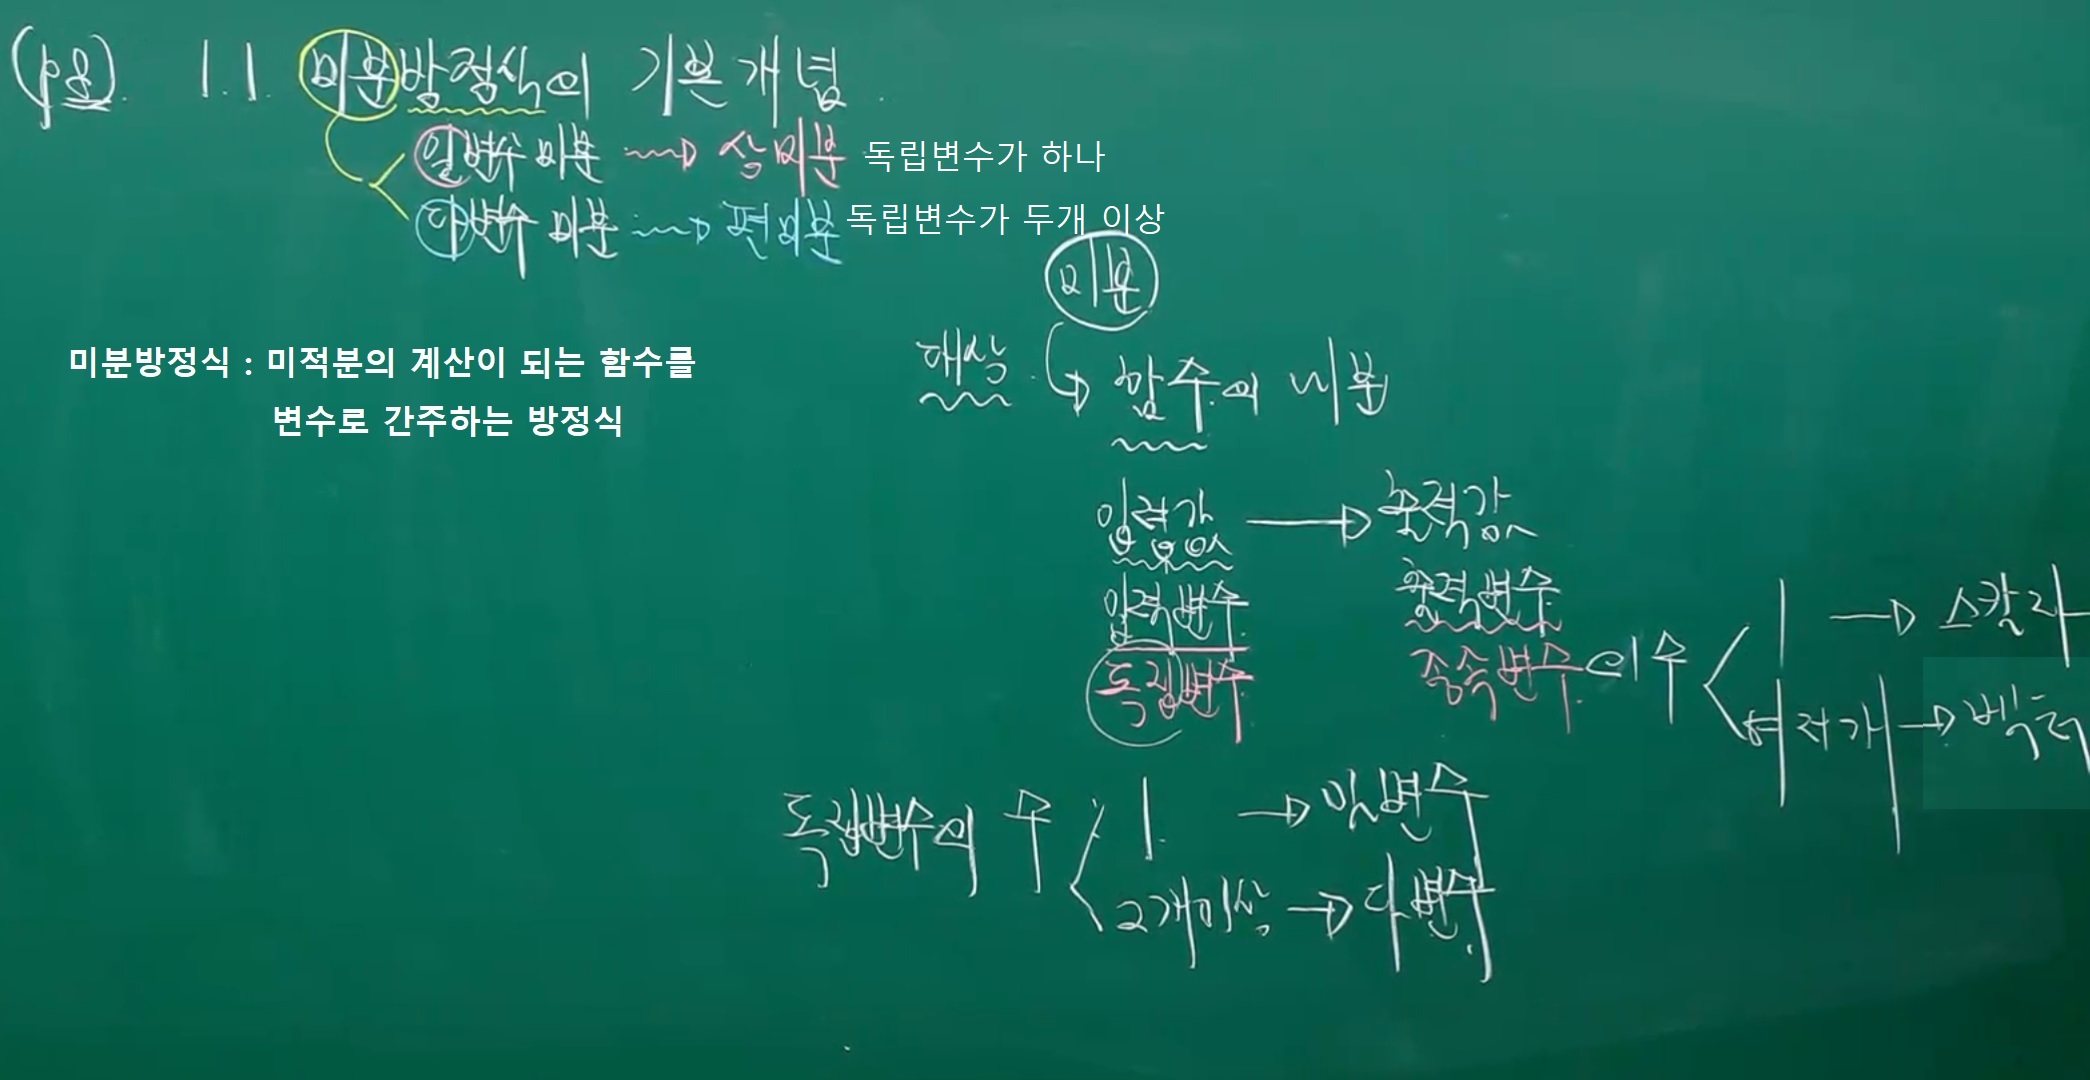 (p8). 1.1. 미분방정식의 기본개념.
일변수 미분 → 상미분 독립변수가 하나
다변수 미분 → 편미분 독립변수가 두개 이상
미분
대상. 함수의 미분
미분방정식 : 미적분의 계산이 되는 함수를
변수로 간주하는 방정식
입력값 → 출력값
입력변수 출력변수
독립변수 종속변수의 수
1 → 스칼라
여러개 → 벡터
독립변수의 수
1. → 일변수
2개이상 → 다변수.